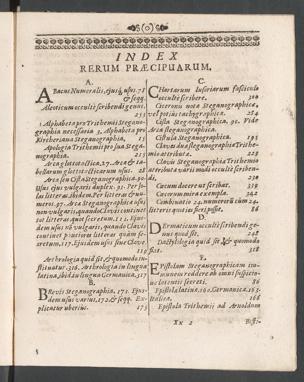 (o)
INDEX
RERUM PRÆCIPUARUM.
A.
Abacus Numeralis, ejusq́; usus. 75
& seqq.
Aleoticum occultè scribendi genus.
235
Alphabeta pro Trithemii Stegano-
graphia necessaria 9, Alphabeta pro
Kircheriana Steganographia, 15
Apologia Trithemii pro sua Stega-
nographia. 215
Arca glottotactica, 27. Arcæ & ta-
bellarum glottotacticarum usus. 28
Arca seu Cista Steganographica. 90
Usus ejus vulgaris duplex. 93. Per so-
las litteras ibidem. Per litteras & nu-
meros. 97. Arcæ Steganographicæ usus
non vulgaris, quando Clavis continet
tot litteras quot secretum. 115. Ejus-
dem usus non vulgaris, quando Clavis
continet pauciores litteras quàm se-
cretum, 117. Ejusdem usus sine Clave.
Arthrologia quid sit, & quomodo in-
stituatur, 316. Arthrologia in lingua
latina, ibid. in lingua Germanica, 317.
B.
Brevis Steganographia, 172. Ejus-
dem usus varius, 172. & seqq. Ex-
plicatur uberius. 175
C.
Chartarum lusoriarum fasciculo
occultè scribere. 310
Ciceronis nota Steganographica,
vel potiùs tachygraphica. 284
Cista Steganographica, 90. Vide
Arca steganographica.
Cistula Steganographica. 195
Clavis duæ steganographicæ Trithe-
mio attributa. 228
Clavis Steganographia Trithemio
attributa varii modi occultè scriben-
di. 229
Cæcum docere ut scribat. 338
Cæcorum mira exempla. 342
Combinatio 24. numerorū cum 24.
litteris quoties fieri possit. 86
D.
Dermaticum occultè scribendi ge-
nus quod sit. 248
Dactylologia quid sit, & quomodo
fiat. 318
E.
Epistolam Steganographicam im-
munem reddere ab omni suspicio-
ne latentis secreti. 86
Epistola latina. 160. Germanica. 163.
Italica. 166
Epistola Trithemii ad Arnoldum
Xx 2